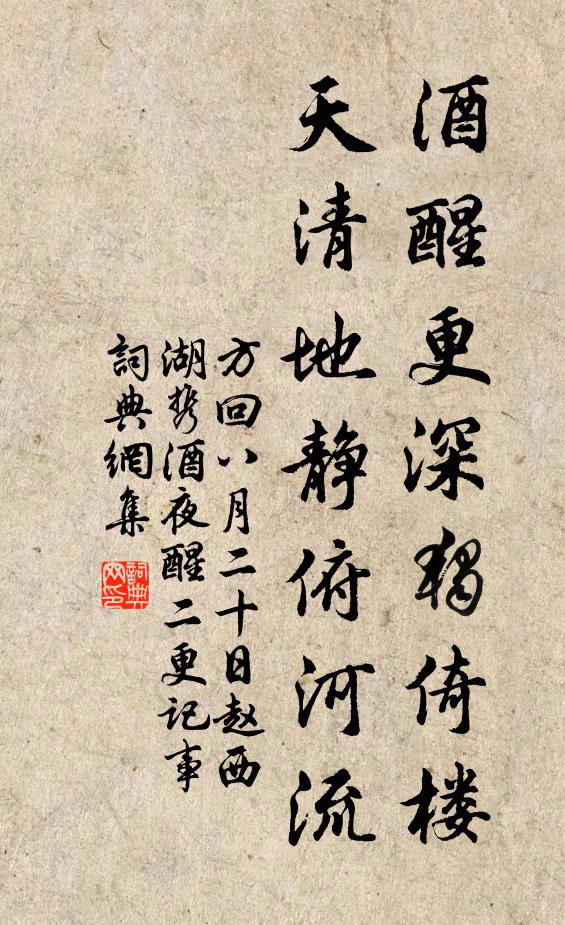 酒醒更深独倚楼
天清地静俯河流
方回八月二十日赵西
湖携酒夜醒二更记事
詞典網集
詞典网印